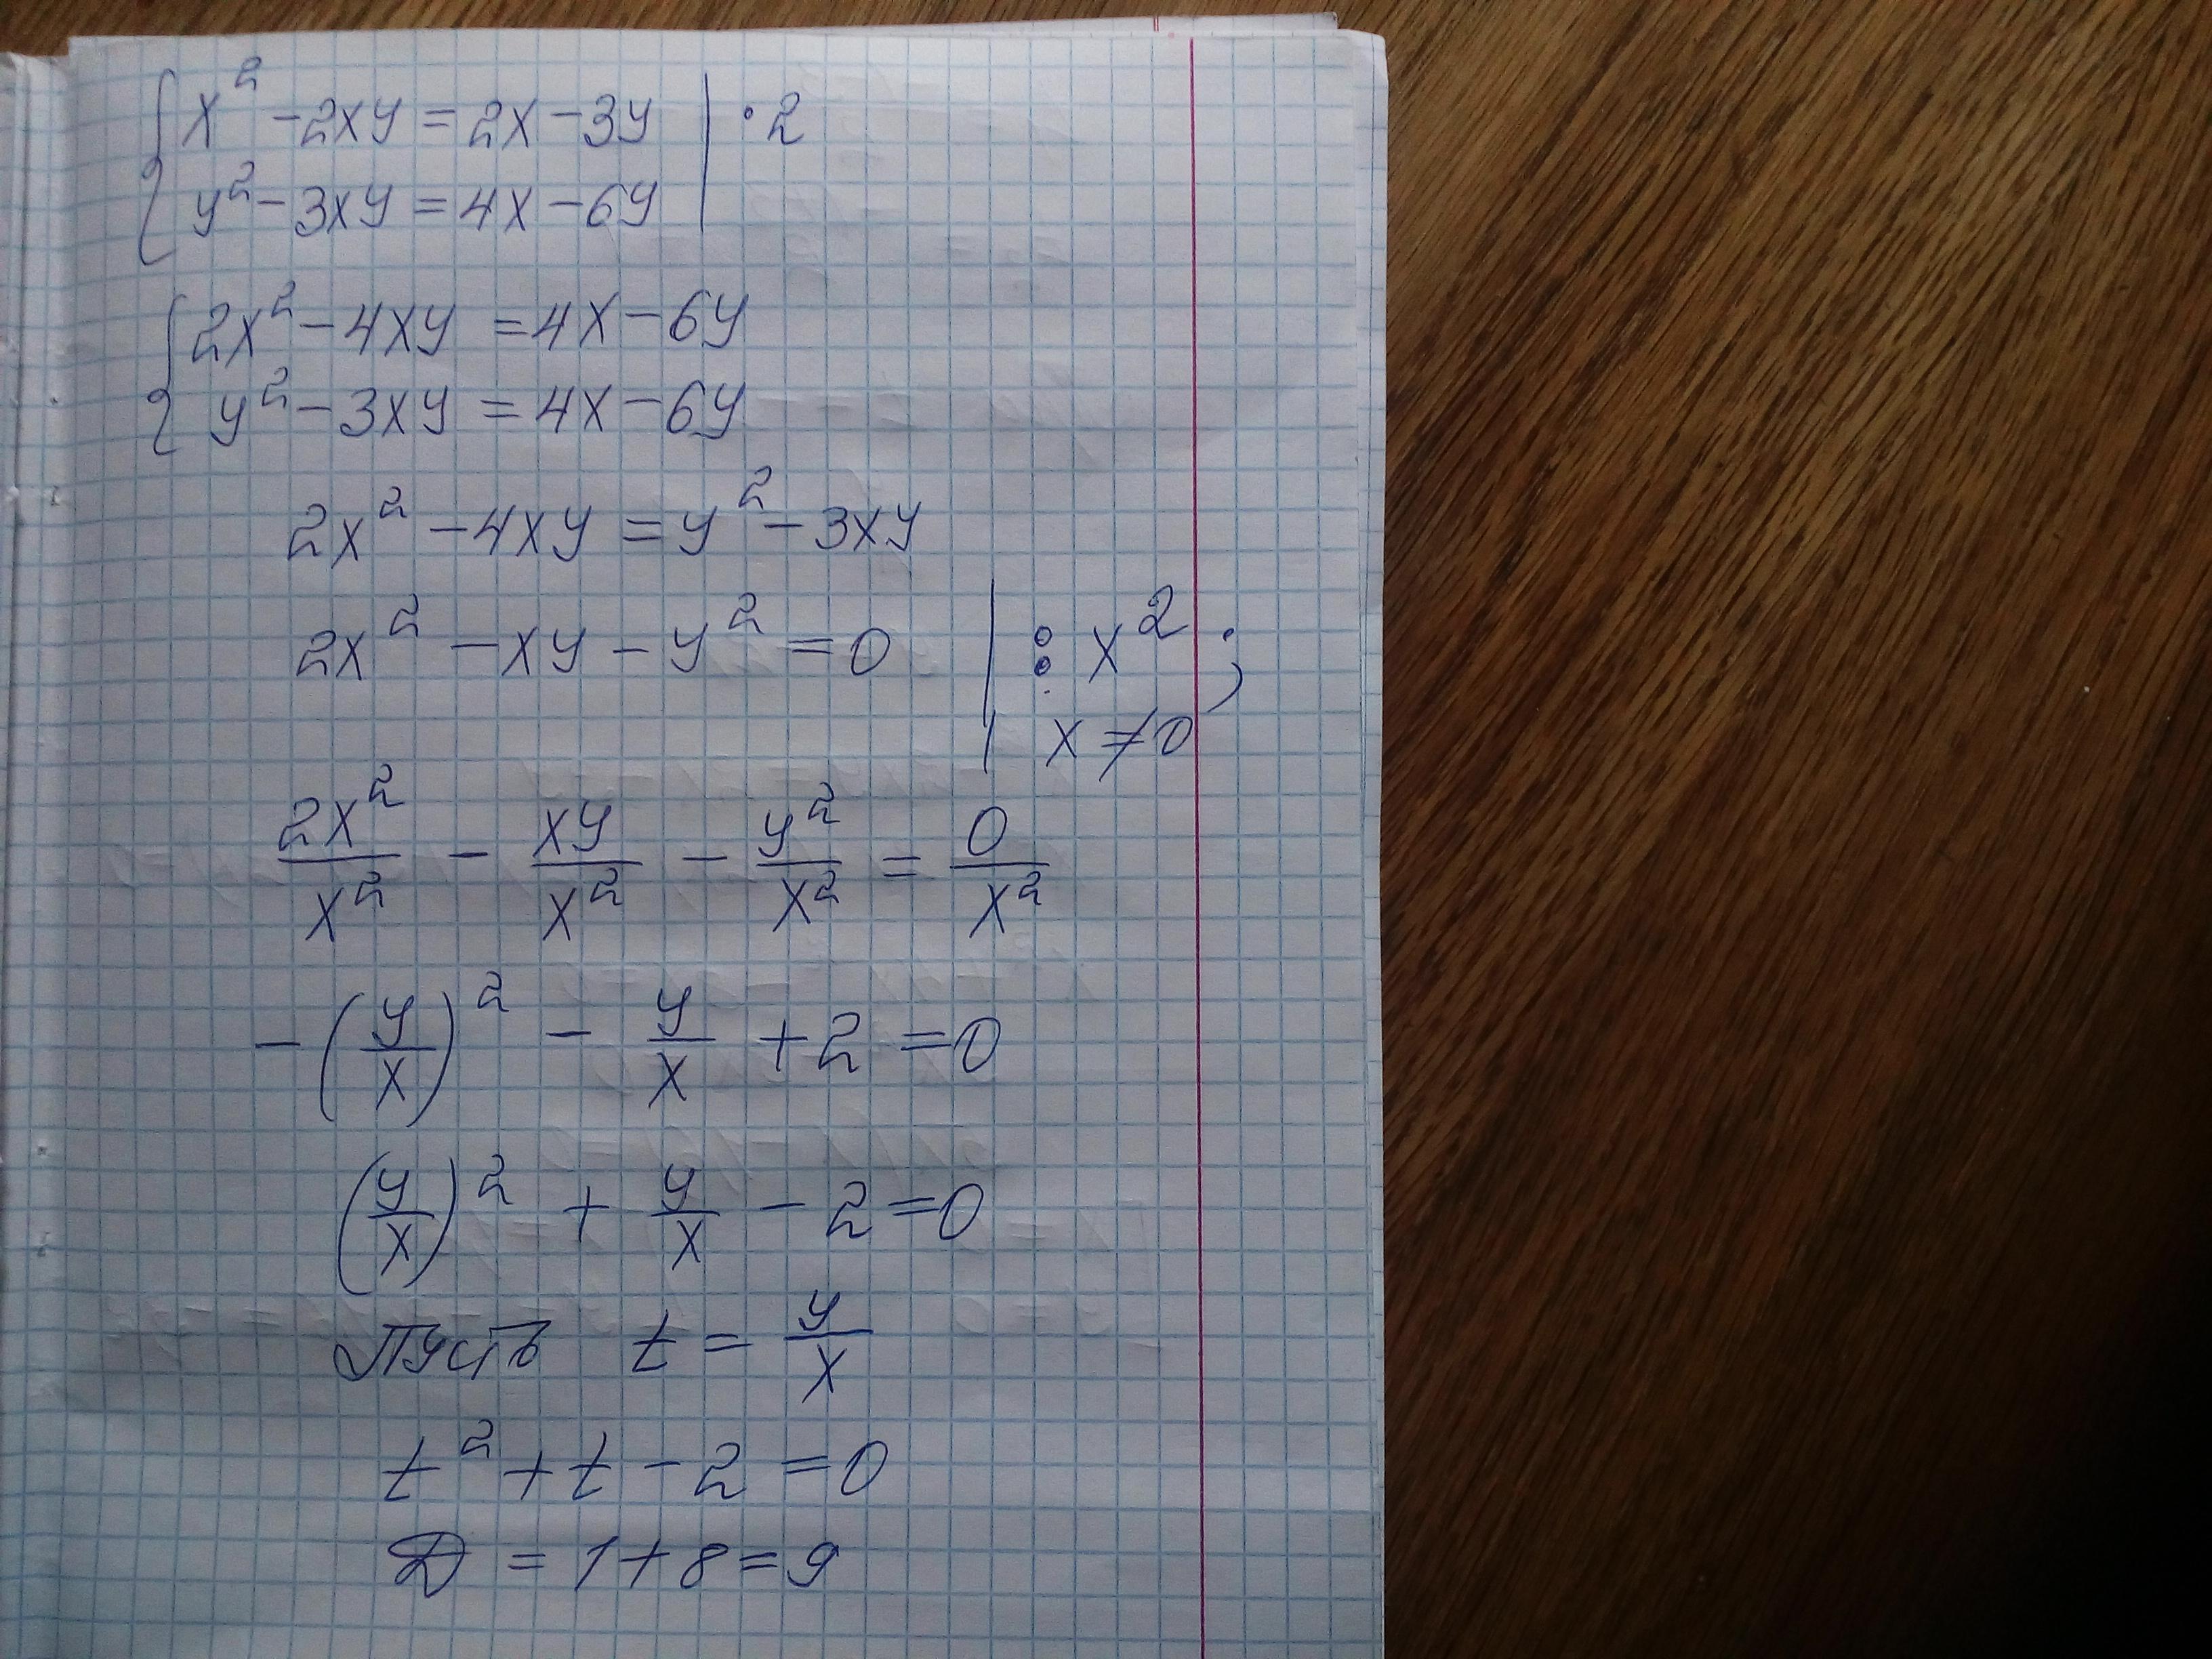 { x² - 2xy = 2x - 3y | · 2
{ y² - 3xy = 4x - 6y |
{ 2x² - 4xy = 4x - 6y
{ y² - 3xy = 4x - 6y
2x² - 4xy = y² - 3xy
2x² - xy - y² = 0 | : x² ;
| x ≠ 0
2x²/x² - xy/x² - y²/x² = 0/x²
- (y/x)² - y/x + 2 = 0
(y/x)² + y/x - 2 = 0
Пусть t = y/x
t² + t - 2 = 0
Д = 1 + 8 = 9